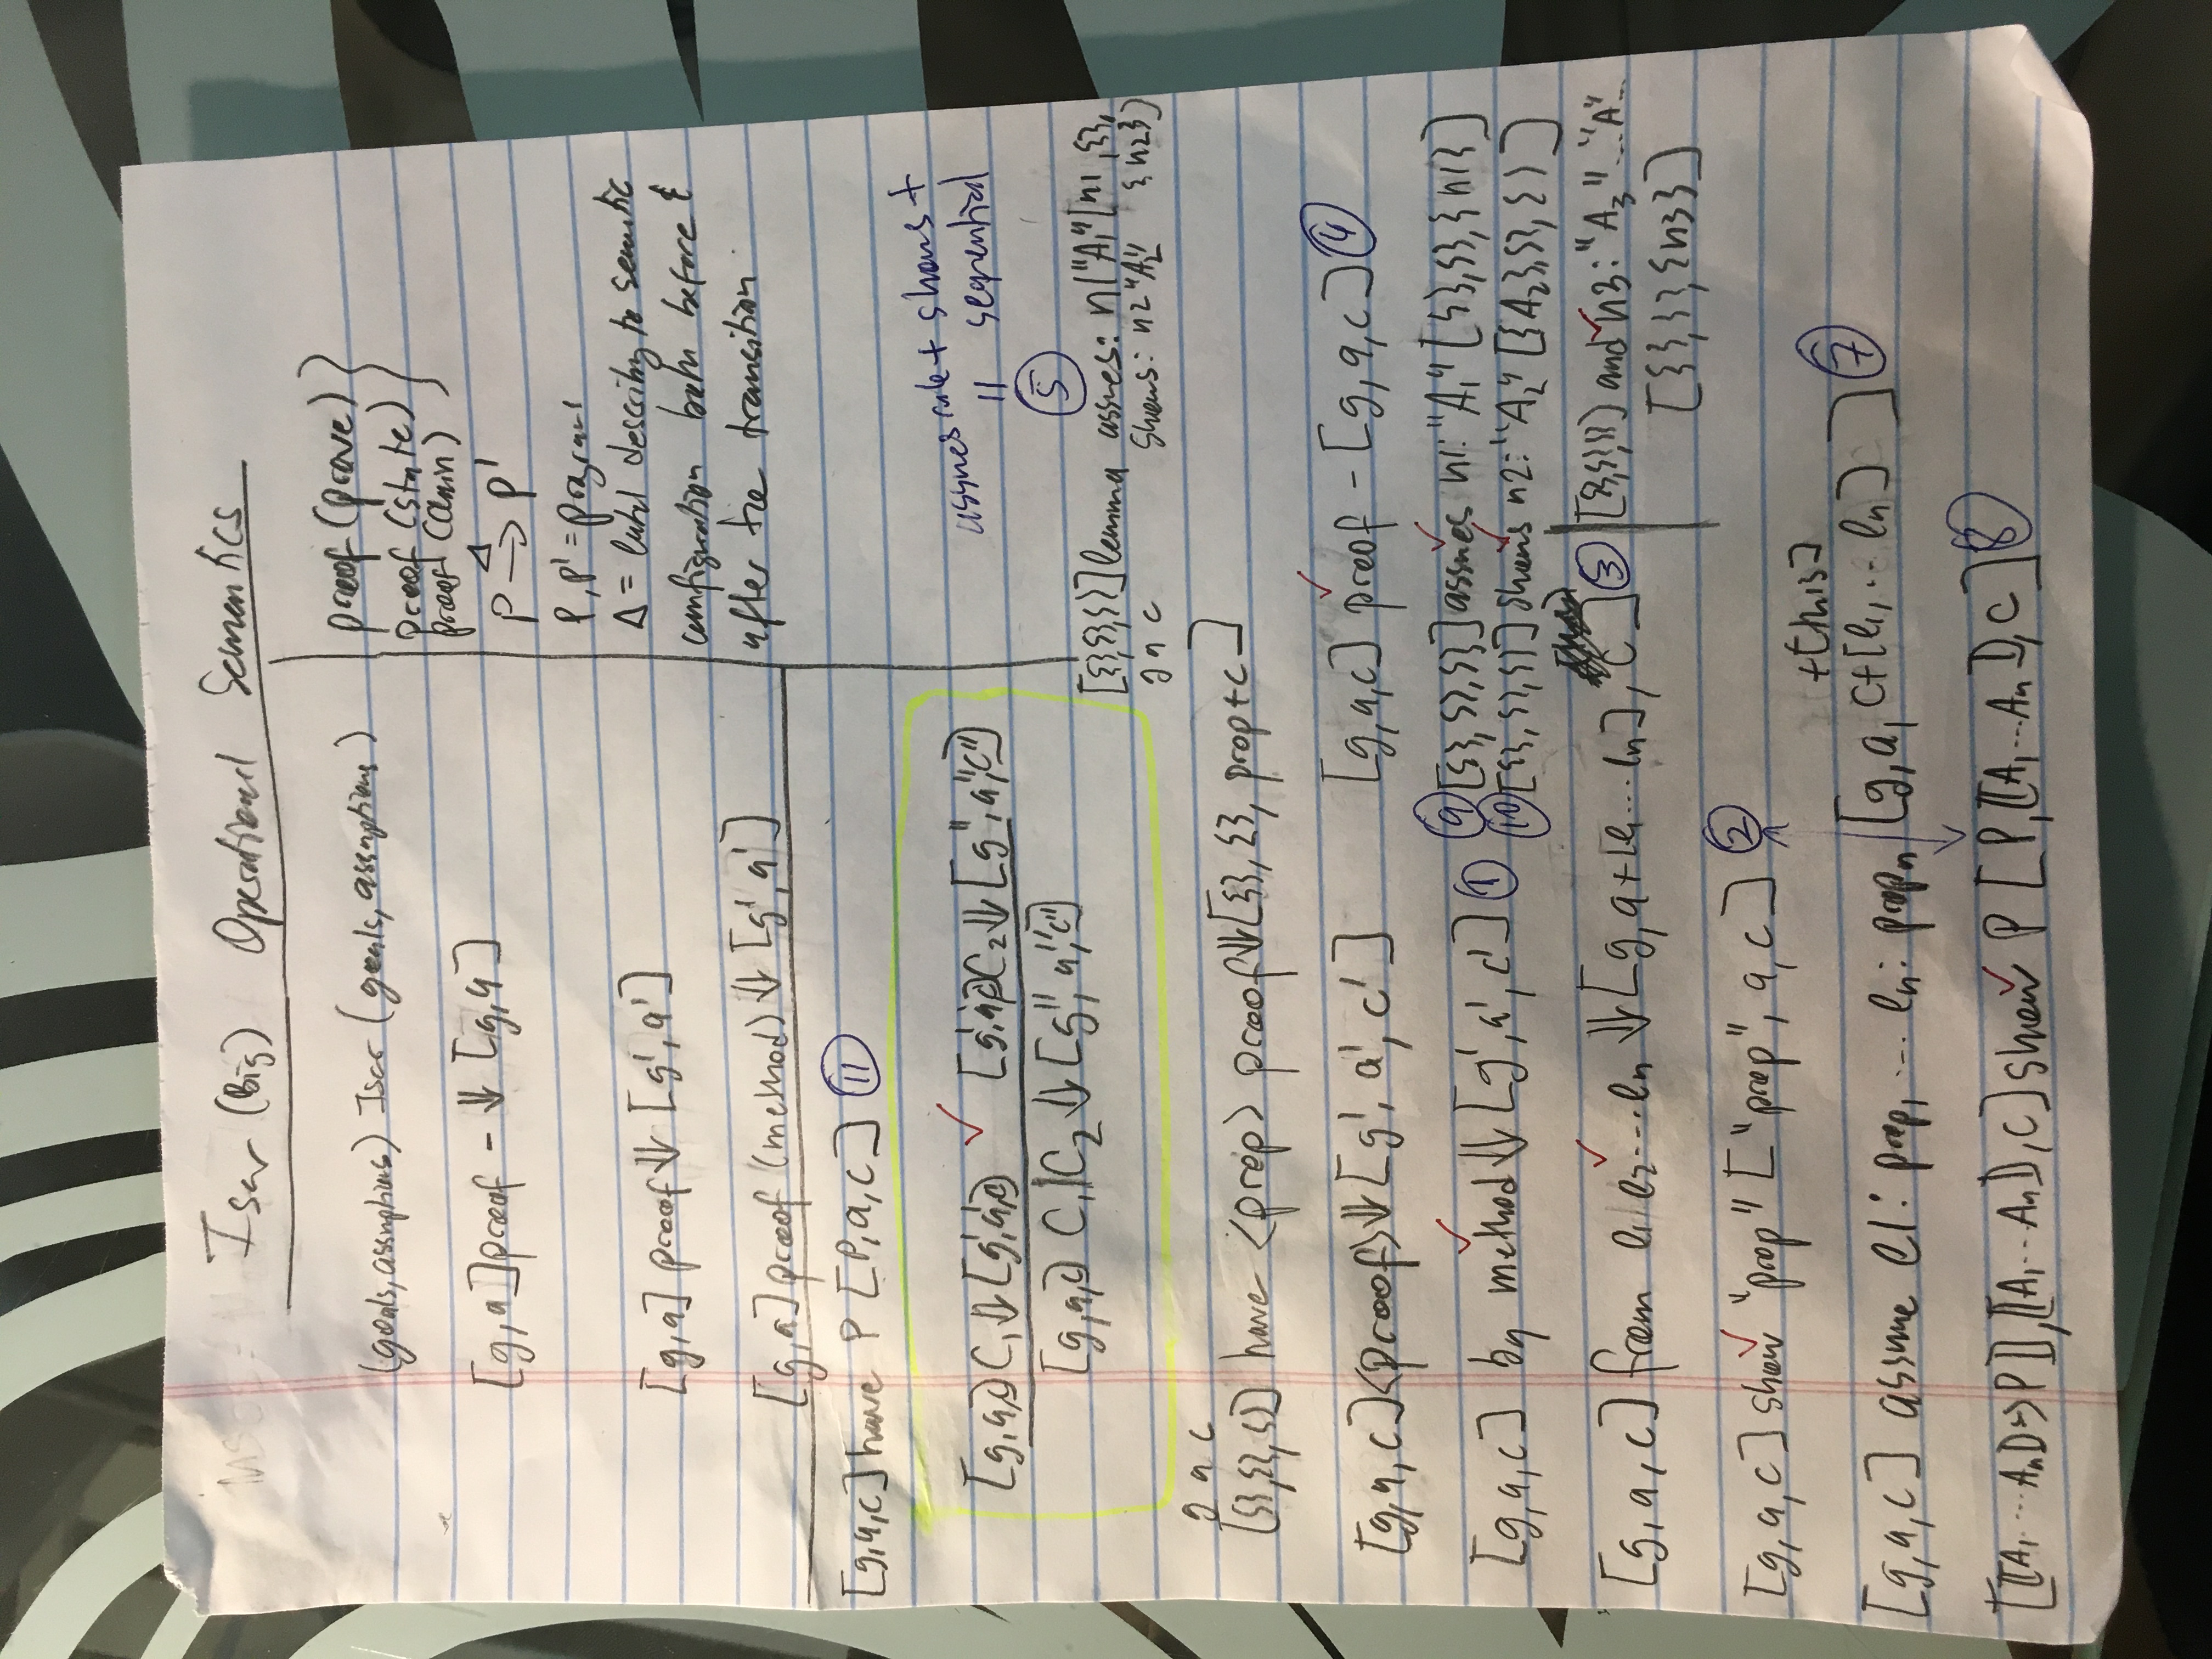 Isar (Big) Operational Semantics
(goals, assmptions) Isar (goals, assmptions)
[g,a] proof - ⇓ [g,a]
[g,a] proof ⇓ [g',a']
[g,a] proof (method) ⇓ [g',a']
proof (prove)
proof (state)
proof (chain)
P -Δ-> P'
P, P' = programs
Δ = label describing te semantic
configuration both before &
after tze transition.
[g,a,c] have P [P,a,c] (11)
[g,a,c] C₁ ⇓ [g',a',c'] ✓ [g',a',c'] C₂ ⇓ [g'',a'',c'']
[g,a,c] C₁|C₂ ⇓ [g'',a'',c'']
assmes rule + shows +
|| sequential
(5)
[{},{},{}] lemma assmes: n1"A₁" [n1,{},
g a c shows: n2"A₂" {n2}]
g a c
[{},{},{}] have <prop> proof ⇓ [{},{}, prop+c]
[g,a,c] <proof> ⇓ [g',a',c']
[g,a,c] proof - [g,a,c] (4)
[g,a,c] by method ⇓ [g',a',c'] (1)
(9) [{},{},{}] assmes n1: "A₁" [{},{},{n1}]
(10) [{},{},{}] shows n2: "A₂" [{A₂},{},{}]
[g,a,c] from l₁ l₂ ... ln ⇓ [g, a+[l₁...ln], c] (3)
[{},{},{}] and n3: "A₃"..."A"...
[{},{},{n3}]
[g,a,c] show "prop" ["prop", a, c] (2)
+[this]
[g,a,c] assume l1: prop₁ ... ln: propn [g,a, c+[l₁,...ln] ] (7)
[⟦A₁...An⟧=>P⟧,⟦A₁...An⟧,C] show P [P,⟦A₁...An⟧,C] (8)